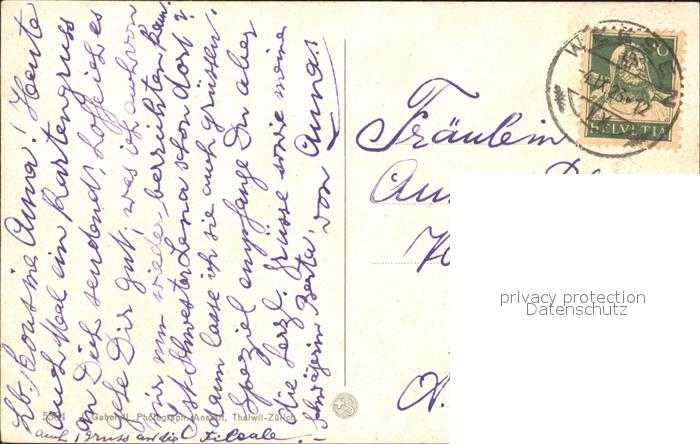 Lb. Cousine Anna! Heute
auch Mal ein Kartengruss
an Dich sendend, hoffe ich es
gehe Dir gut, was ich auch von
mir nun wieder berichten kann.
Ist Schwester Lena schon dort?
dann lasse ich sie auch grüssen.
Speziel empfange Du aber
die herzl. Grüsse sowie meine
Schwägerin Berta, von Anna.
auch Gruss an die Filiale.
5591 J. Gaberell, Photograph. Anstalt, Thalwil-Zürich
Fräulein
WEESEN
HELVETIA
privacy protection
Datenschutz